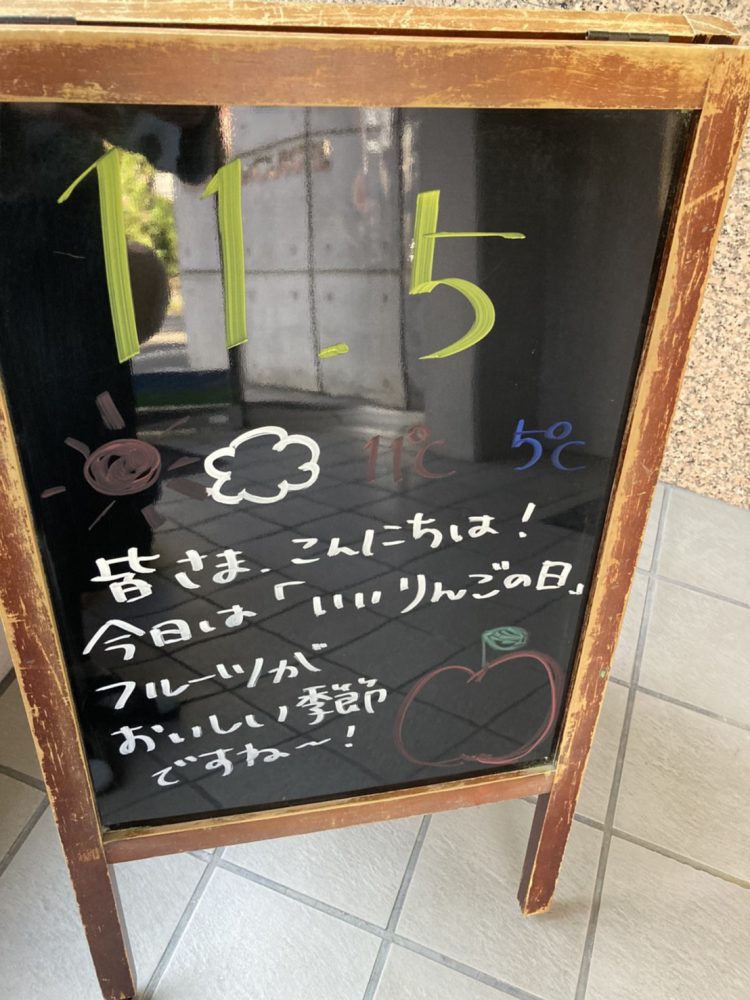 11.5
11℃ 5℃
皆さま、こんにちは！
今日は「いいりんごの日」
フルーツが
おいしい季節
ですね〜！